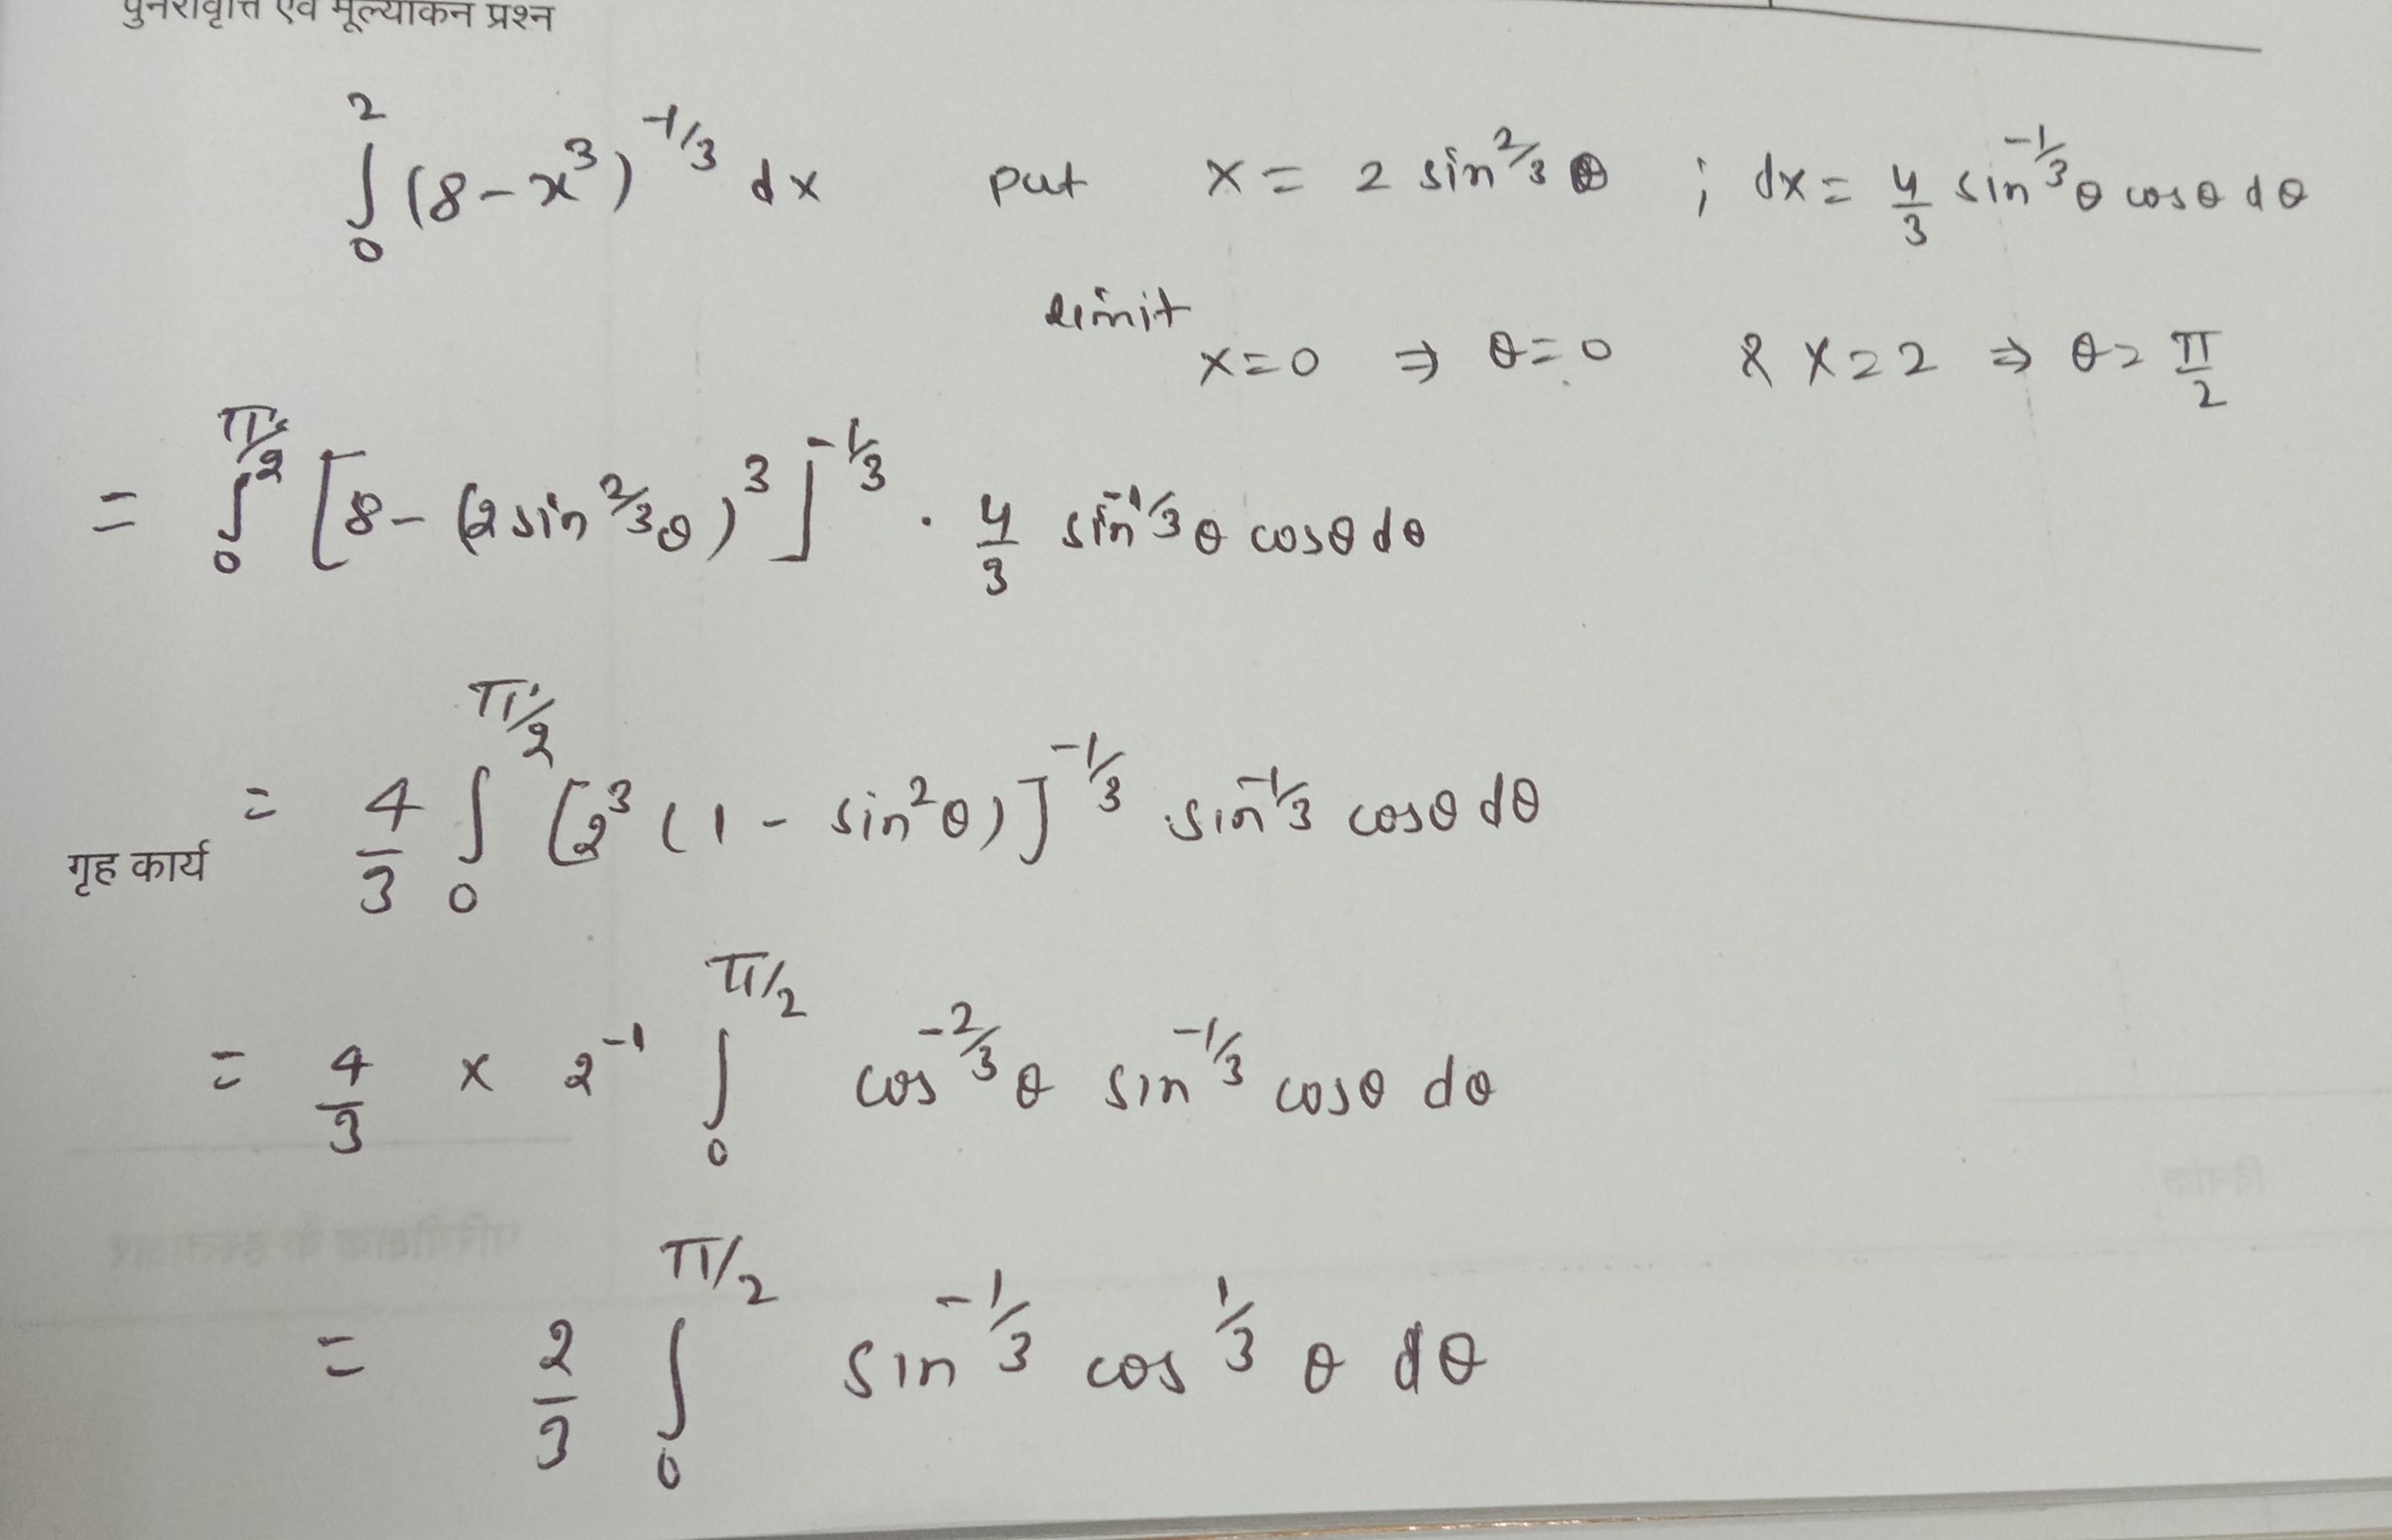 पुनरावृत्ति एवं मूल्यांकन प्रश्न
∫₀² (8-x³)^{-1/3} dx put x = 2 sin^{2/3} θ ; dx = 4/3 sin^{-1/3} θ cosθ dθ
limit x=0 ⇒ θ=0 & x=2 ⇒ θ=π/2
= ∫₀^{π/2} [8-(2sin^{2/3}θ)³]^{-1/3} · 4/3 sin^{-1/3}θ cosθ dθ
= 4/3 ∫₀^{π/2} [2³(1-sin²θ)]^{-1/3} sin^{-1/3} cosθ dθ
गृह कार्य
= 4/3 × 2^{-1} ∫₀^{π/2} cos^{-2/3}θ sin^{-1/3} cosθ dθ
= 2/3 ∫₀^{π/2} sin^{-1/3} cos^{1/3} θ dθ